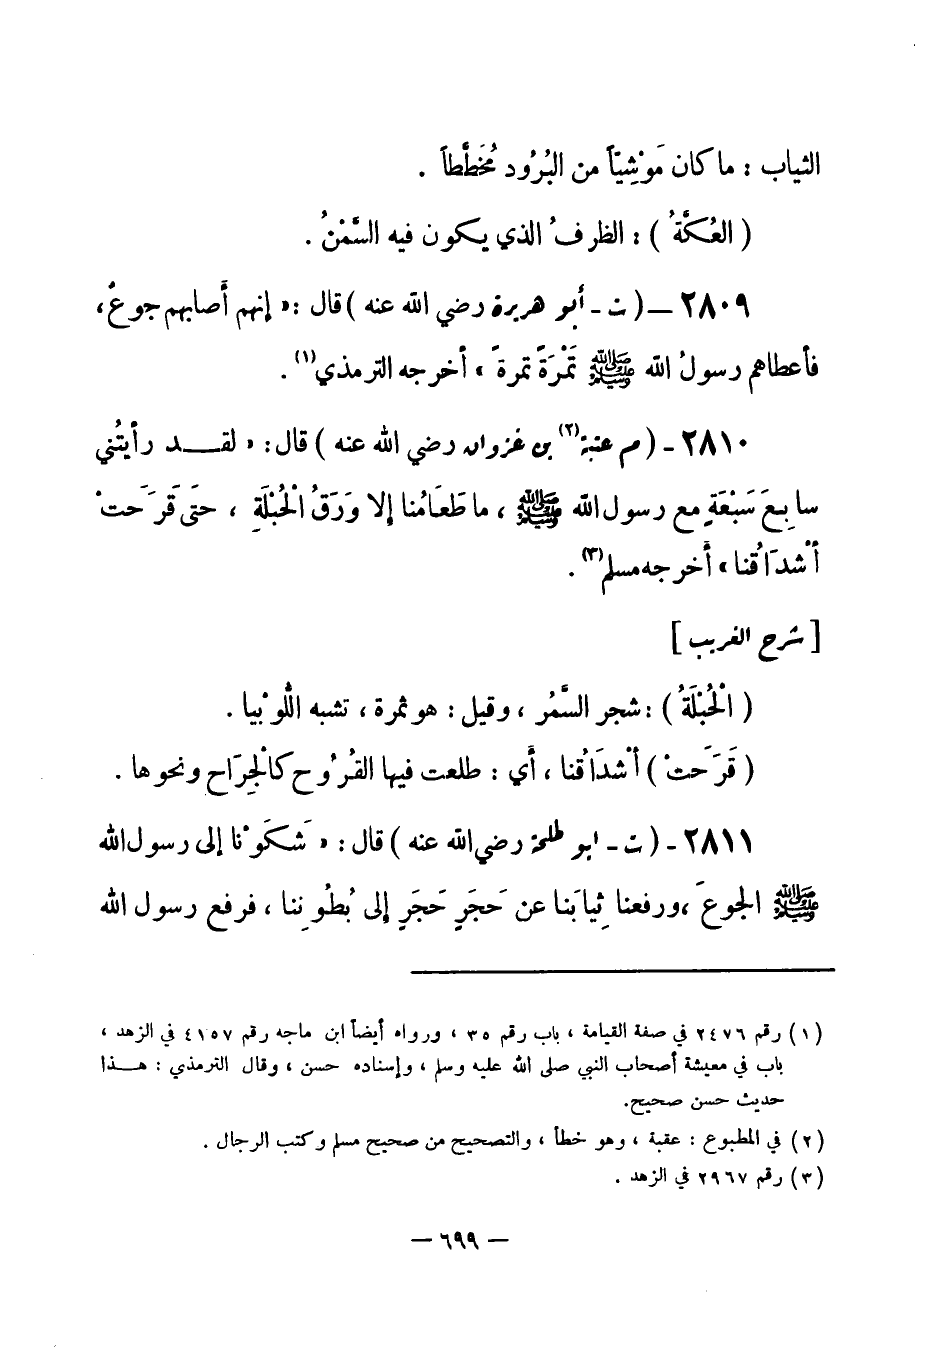 الثياب : ما كان مَوْشِيّاً من البُرُود مُخَطَّطاً .
( العُكَّةُ ) : الظرفُ الذي يكون فيه السَّمْنُ .
٢٨٠٩ – ( ت - أبو هريرة رضي الله عنه ) قال : « إنهم أصابهم جوعٌ ،
فأعطاهم رسولُ الله ﷺ تَمْرَةً تمرةً » أخرجه الترمذي(١) .
٢٨١٠ - ( م عتبة(٢) بن غزوان رضي الله عنه ) قال : « لقد رأيتُني
سابِعَ سَبْعَةٍ مع رسول الله ﷺ ، ما طَعَامُنا إلا وَرَقُ الْحُبْلَةِ ، حتى قَرِحَتْ
أشْدَاقُنا » أخرجه مسلم(٣) .
[ شرح الغريب ]
( الْحُبْلَةُ ) : شجر السَّمُر ، وقيل : هو ثمرة ، تشبه اللُّوْبيا .
( قَرِحَتْ ) أشْدَاقُنا ، أي : طلعت فيها القُرُوح كالْجِرَاح ونحوها .
٢٨١١ - ( ت - ابو طلحة رضي الله عنه ) قال : « شَكَوْنا إلى رسول الله
ﷺ الجوعَ ، ورفعنا ثِيابَنا عن حَجَرٍ حَجَرٍ إلى بُطُونِنا ، فرفع رسول الله
(١) رقم ٢٤٧٦ في صفة القيامة ، باب رقم ٣٥ ، ورواه أيضاً ابن ماجه رقم ٤١٥٧ في الزهد ،
باب في معيشة أصحاب النبي صلى الله عليه وسلم ، وإسناده حسن ، وقال الترمذي : هذا
حديث حسن صحيح.
(٢) في المطبوع : عقبة ، وهو خطأ ، والتصحيح من صحيح مسلم وكتب الرجال .
(٣) رقم ٢٩٦٧ في الزهد .
– ٦٩٩ –